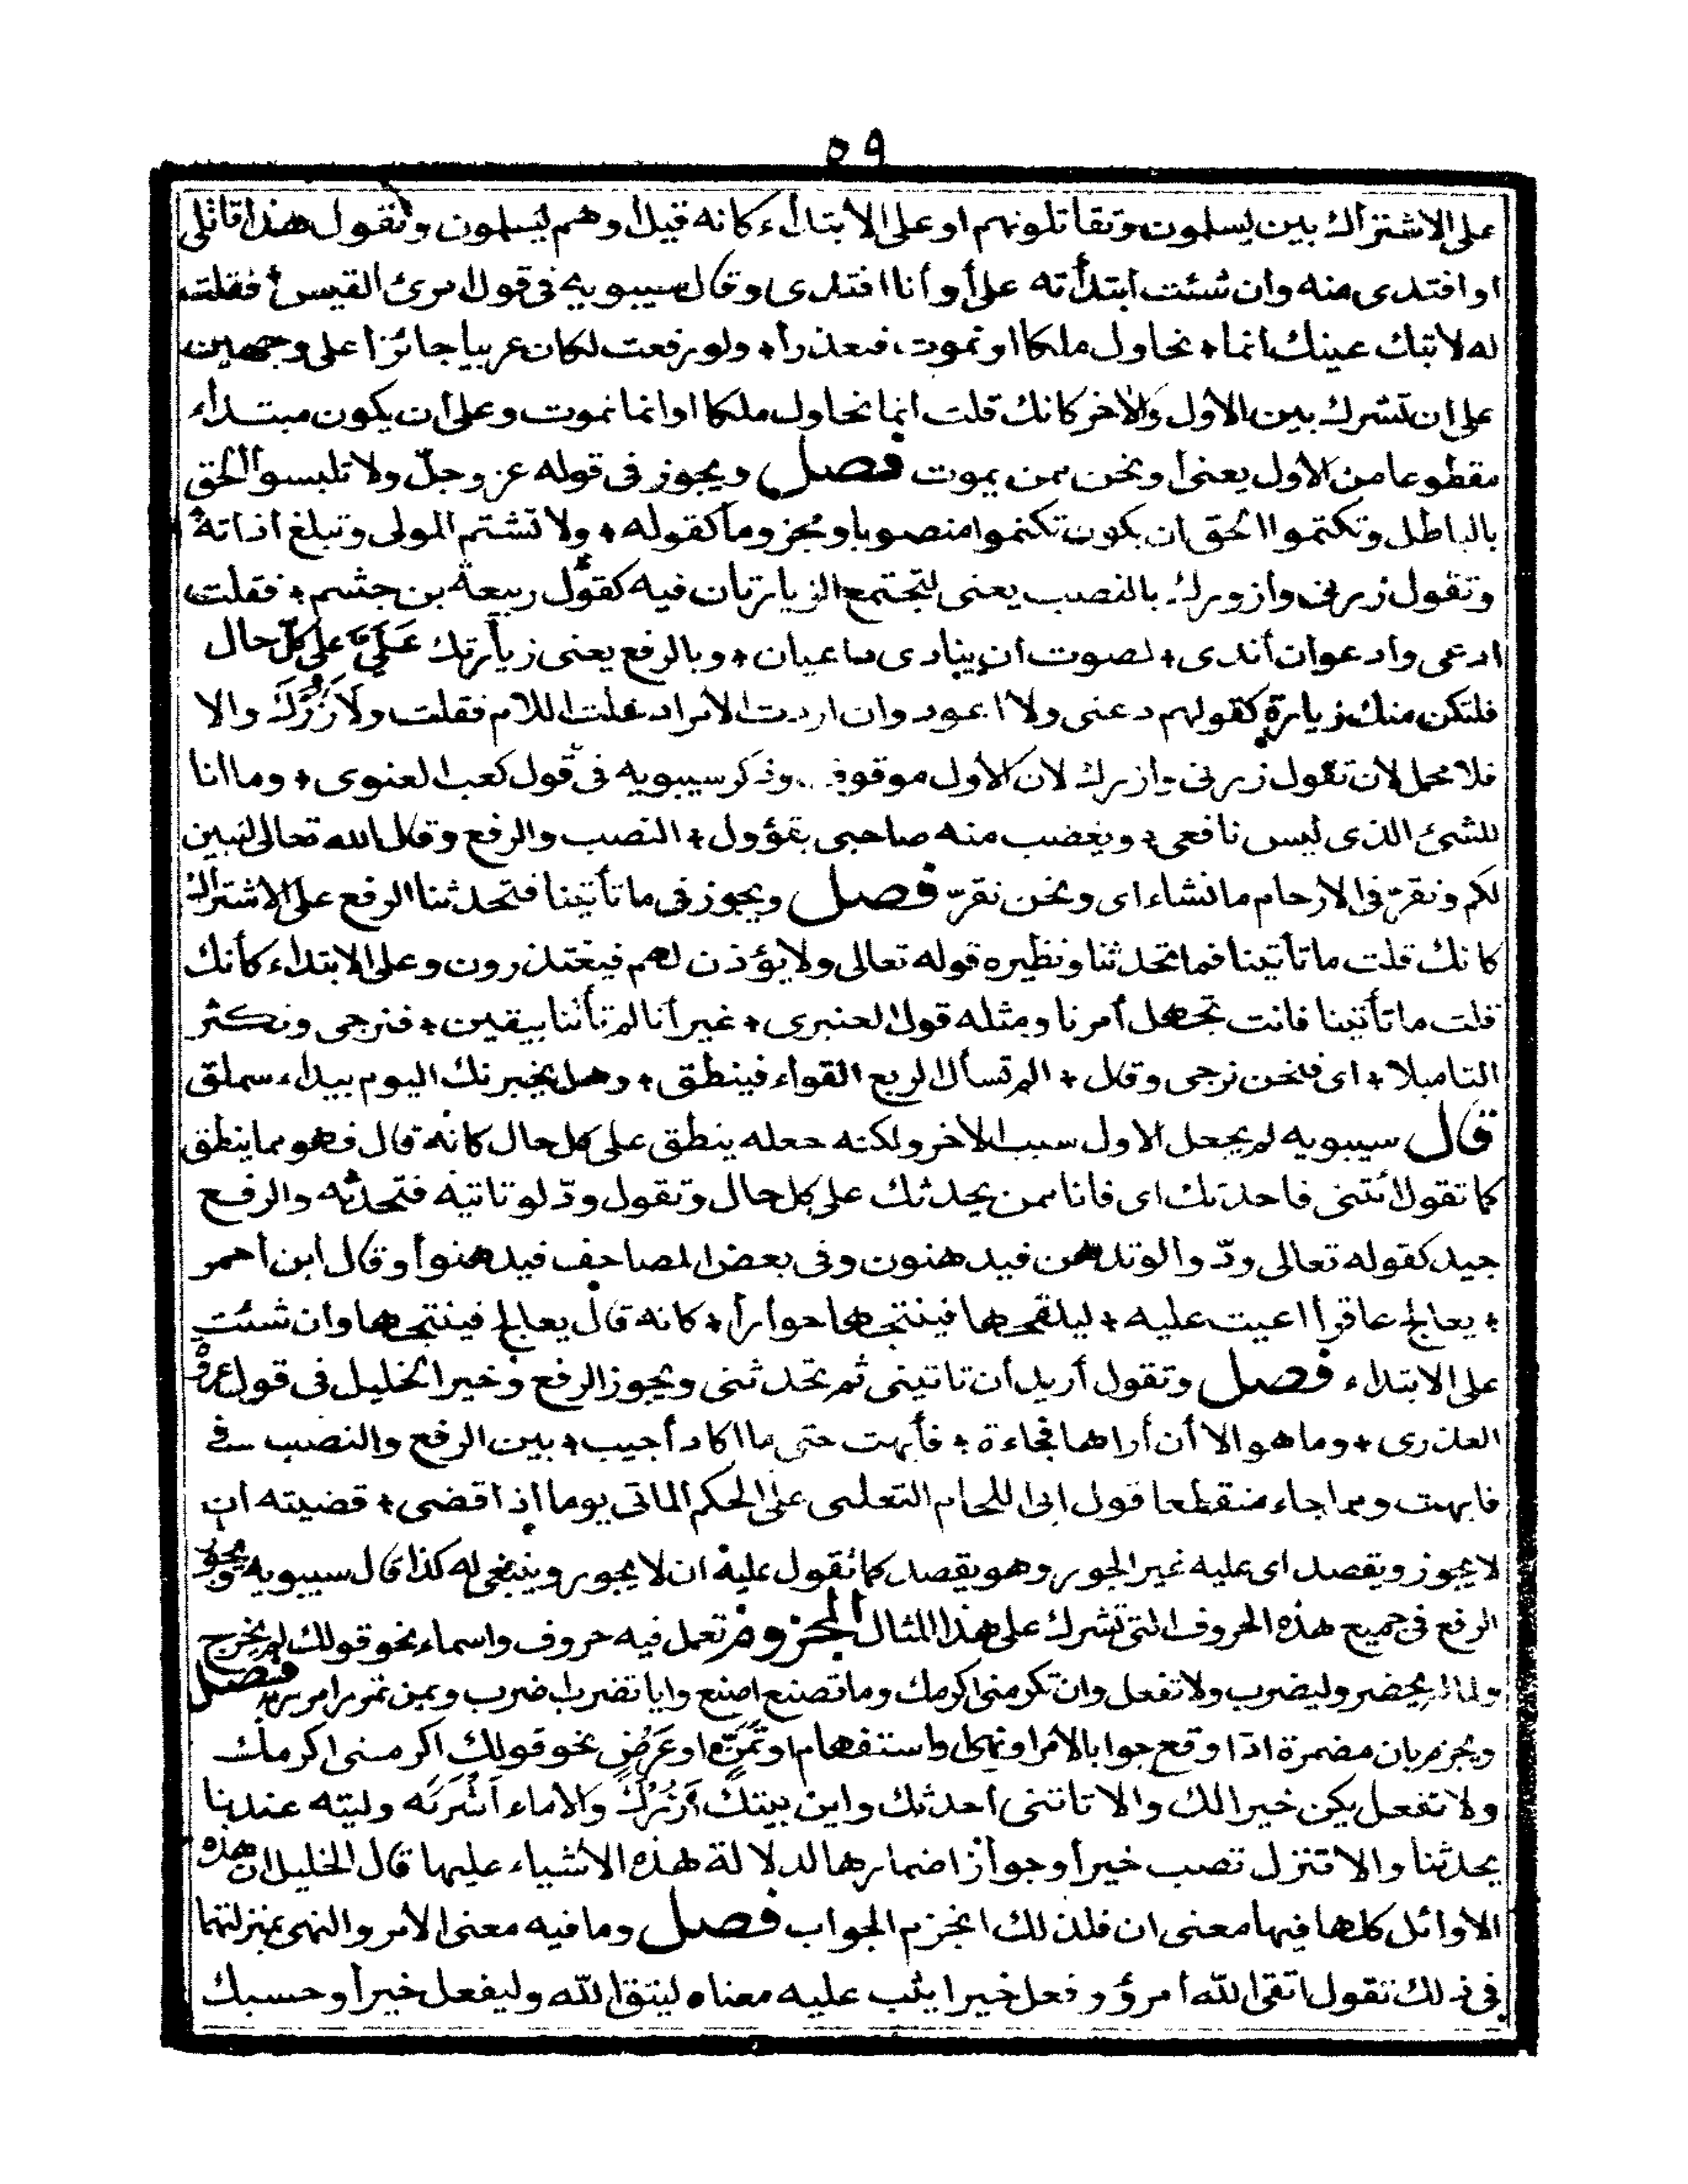 ٥٩
على الاشتراك بين يسلمون وتقاتلونهم او على الابتداء كانه قيل أوهم يسلمون وتقول هذا قاتلى
او افتدى منه وان شئت ابتدأته على أو أنا افتدى وقال سيبويه فى قول امرئ القيس فقلت
له لا تبك عينك انما ٭ نحاول ملكا او نموت فنعذرا ٭ ولو رفعت لكان عربيا جائزا على وجهين
على ان تشرك بين الأول والآخر كانك قلت انما نحاول ملكا او انما نموت وعلى أن يكون مبتدأ
مقطوعا من الأول يعنى أو نحن ممن يموت فصل ويجوز فى قوله عز وجل ولا تلبسوا الحق
بالباطل وتكتموا الحق ان يكون تكتموا منصوبا ومجزوما كقوله ٭ ولا تشتم المولى وتبلغ اذاته
وتقول زرنى وازورك بالنصب يعنى لتجتمع الزيارتان فيه كقول ربيعة بن جشم ٭ فقلت
ادعى وادعوان أندى ٭ لصوت ان ينادى داعيان ٭ وبالرفع يعنى زيارتك عَلَىَّ على كل حال
فلتكن منك زيارة كقولهم دعنى ولا اعود وان اردت الأمر ادخلت اللام فقلت ولأَزُرْكَ والا
فلا محمل لان تقول زرنى وازرك لان الأول موقوف وذكر سيبويه فى قول كعب الغنوى ٭ وما انا
للشئ الذى ليس نافعى ٭ ويغضب منه صاحبى بقؤول ٭ النصب والرفع وقال الله تعالى لنبين
لكم ونقرّ فى الارحام ما نشاء اى ونحن نقرّ فصل ويجوز فى ما تأتينا فتحدثنا الرفع على الاشتراك
كانك قلت ما تأتينا فما تحدثنا ونظيره قوله تعالى ولا يؤذن لهم فيعتذرون وعلى الابتداء كأنك
قلت ما تأتينا فانت تجهل أمرنا ومثله قول العنبرى ٭ غير أنا لم تأتنا بيقين ٭ فنرجى ونكثر
التاميلا ٭ اى فنحن نرجى وقال ٭ الم تسأل الربع القواء فينطق ٭ وهل يخبرنك اليوم بيداء سملق
قال سيبويه لم يجعل الاول سبب الآخر ولكنه جعله ينطق على كل حال كانه قال فهو مما ينطق
كما تقول ائتنى فاحدثك اى فانا ممن يحدثك على كل حال وتقول ودّ لو تاتيه فتحدثه والرفع
جيد كقوله تعالى ودّوا لو تدهن فيدهنون وفى بعض المصاحف فيدهنوا وقال ابن أحمر
٭ يعالج عاقرا اعيت عليه ٭ ليلقحها فينتجها حوارا ٭ كانه قال يعالج فينتجها وان شئت
على الابتداء فصل وتقول أريد أن تاتينى ثم تحدثنى ويجوز الرفع وخير الخليل فى قول عروة
العذرى ٭ وما هو الا أن أراها فجاءة ٭ فأبهت حتى ما اكاد أجيب ٭ بين الرفع والنصب فى
فابهت ومما جاء منقطعا قول ابى اللحام التغلبى على الحكم الماتى يوما اذا قضى ٭ قضيته ان
لا يجوز ويقصد اى عليه غير الجور وهو يقصد كما تقول عليه ان لا يجور وينبغى له كذا قال سيبويه ويجوز
الرفع فى جميع هذه الحروف التى تشرك على هذا المثال المجزوم تعمل فيه حروف واسماء نحو قولك لم يخرج
ولما يحضر وليضرب ولا تفعل وان تكرمنى اكرمك وما تصنع اصنع وايا تضرب اضرب وبمن تمرر امرر به فصل
ويجزم بان مضمرة اذا وقع جوابا لأمر او نهى او استفهام او تمنٍّ او عَرْضٍ نحو قولك اكرمنى اكرمك
ولا تفعل يكن خيرا لك والا تاتنى أحدثك واين بيتك أَزُرْكَ والأماء أَشْرَبْه وليته عندنا
يحدثنا والا تنزل تصب خيرا وجواز اضمارها لدلالة هذه الأشياء عليها قال الخليل ان هذه
الأوائل كلها فيها معنى ان فلذلك انجزم الجواب فصل وما فيه معنى الأمر والنهى بمنزلتهما
فى ذلك تقول اتقى الله أمرؤ وفعل خيرا يثب عليه معناه ليتق الله وليفعل خيرا وحسبك